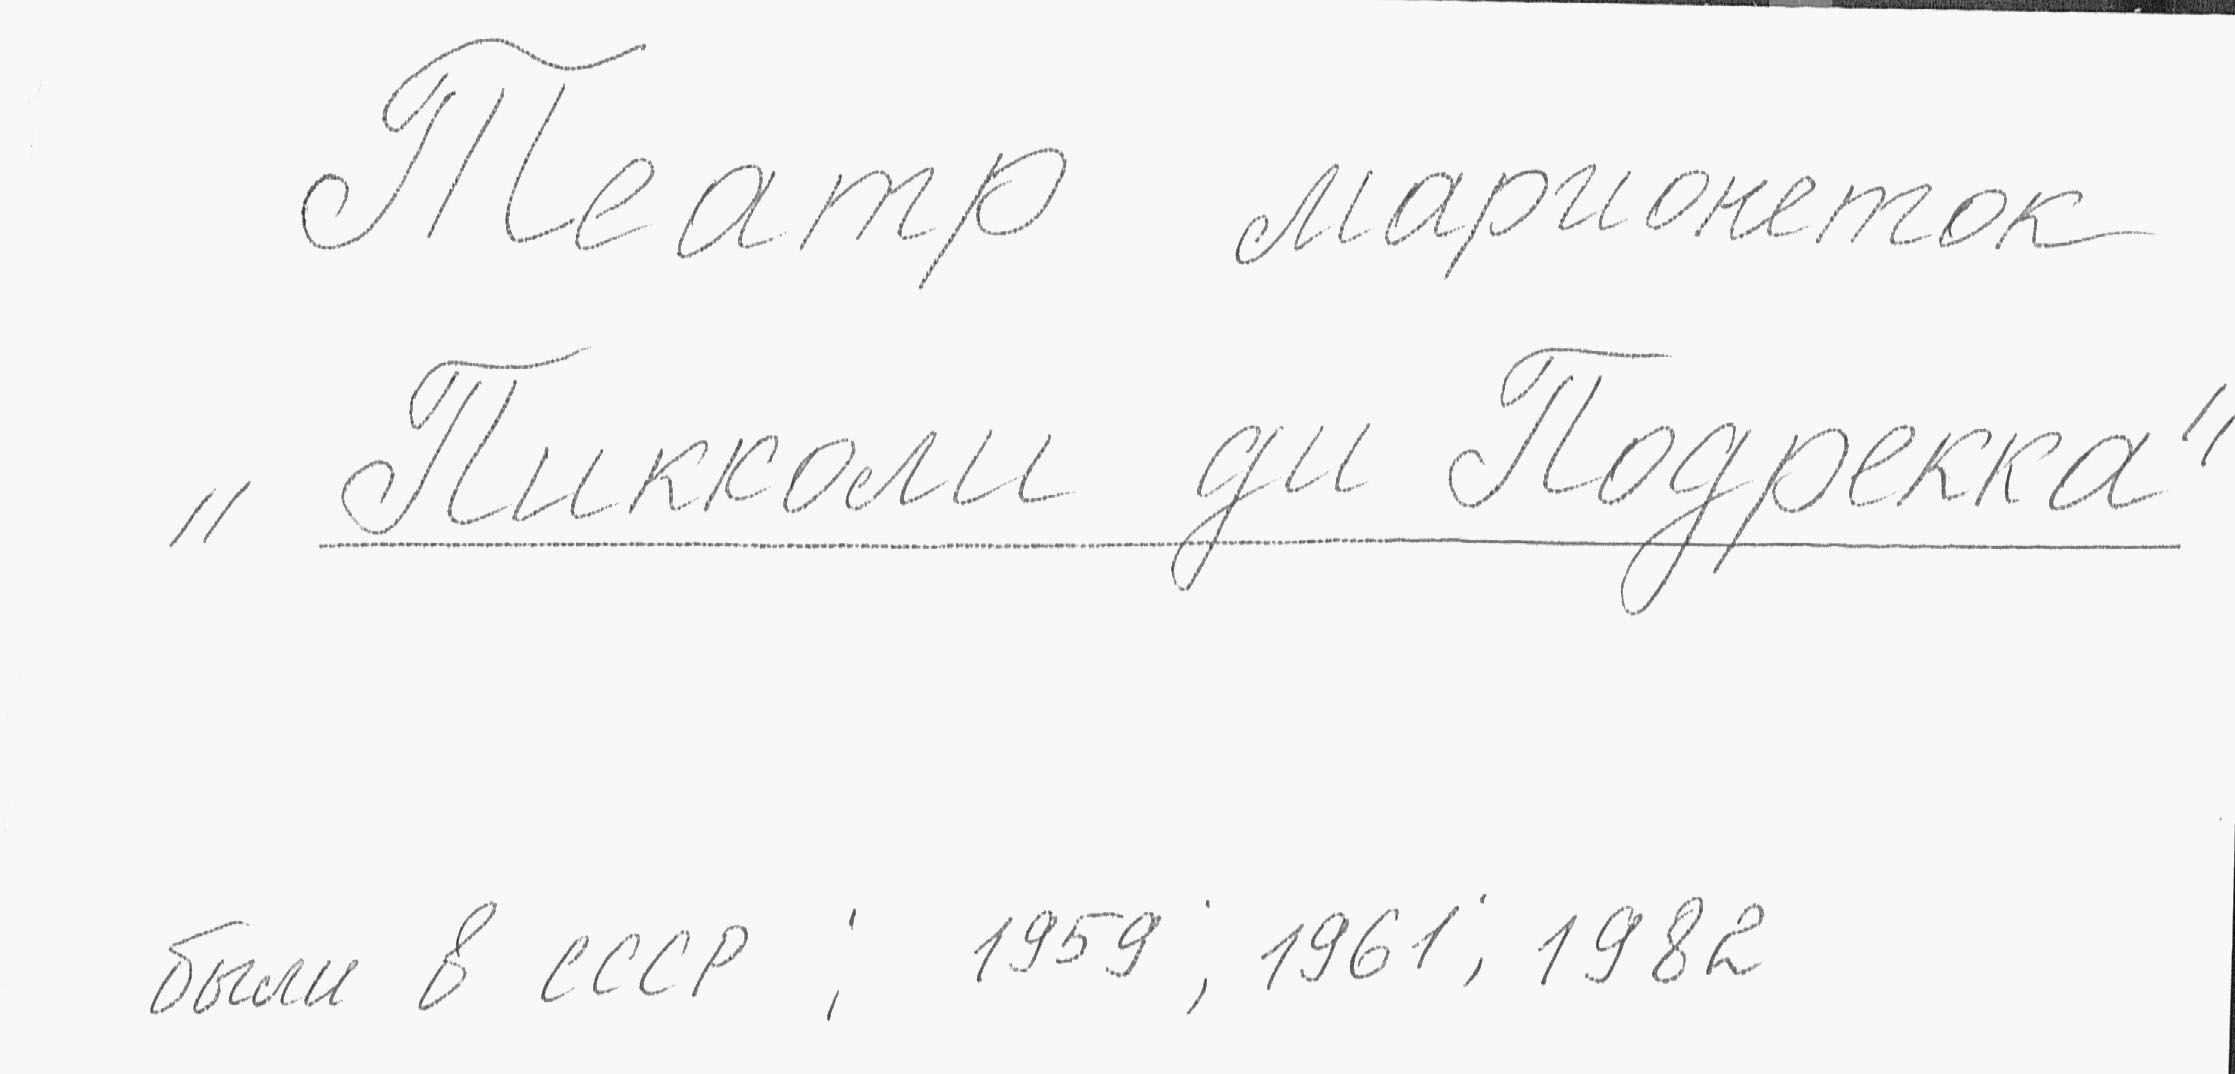 Театр марионеток
„Пикколи ди Подрекка"
были в СССР ; 1959; 1961; 1982